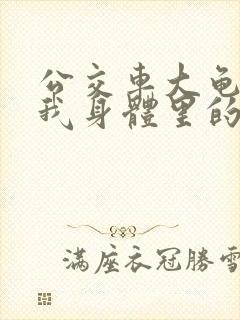 公交车大龟
我身體里的
满座衣冠勝雪